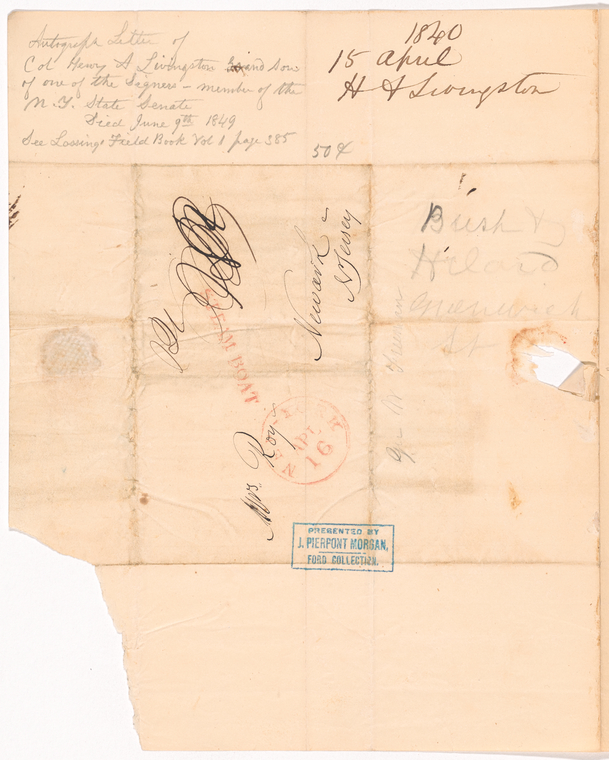 Autograph Letter of
Col Henry A Livingston Grand son
of one of the Signers - member of the
N. Y. State Senate
Died June 9th 1849
See Lossings Field Book Vol 1 page 385
50 ¢
1840
15 April
H A Livingston
Mrs Roy
Newark
N Jersey
STEAM BOAT
YORK
APL
16
Bush
Greenwich
St
PRESENTED BY
J. PIERPONT MORGAN,
FORD COLLECTION.